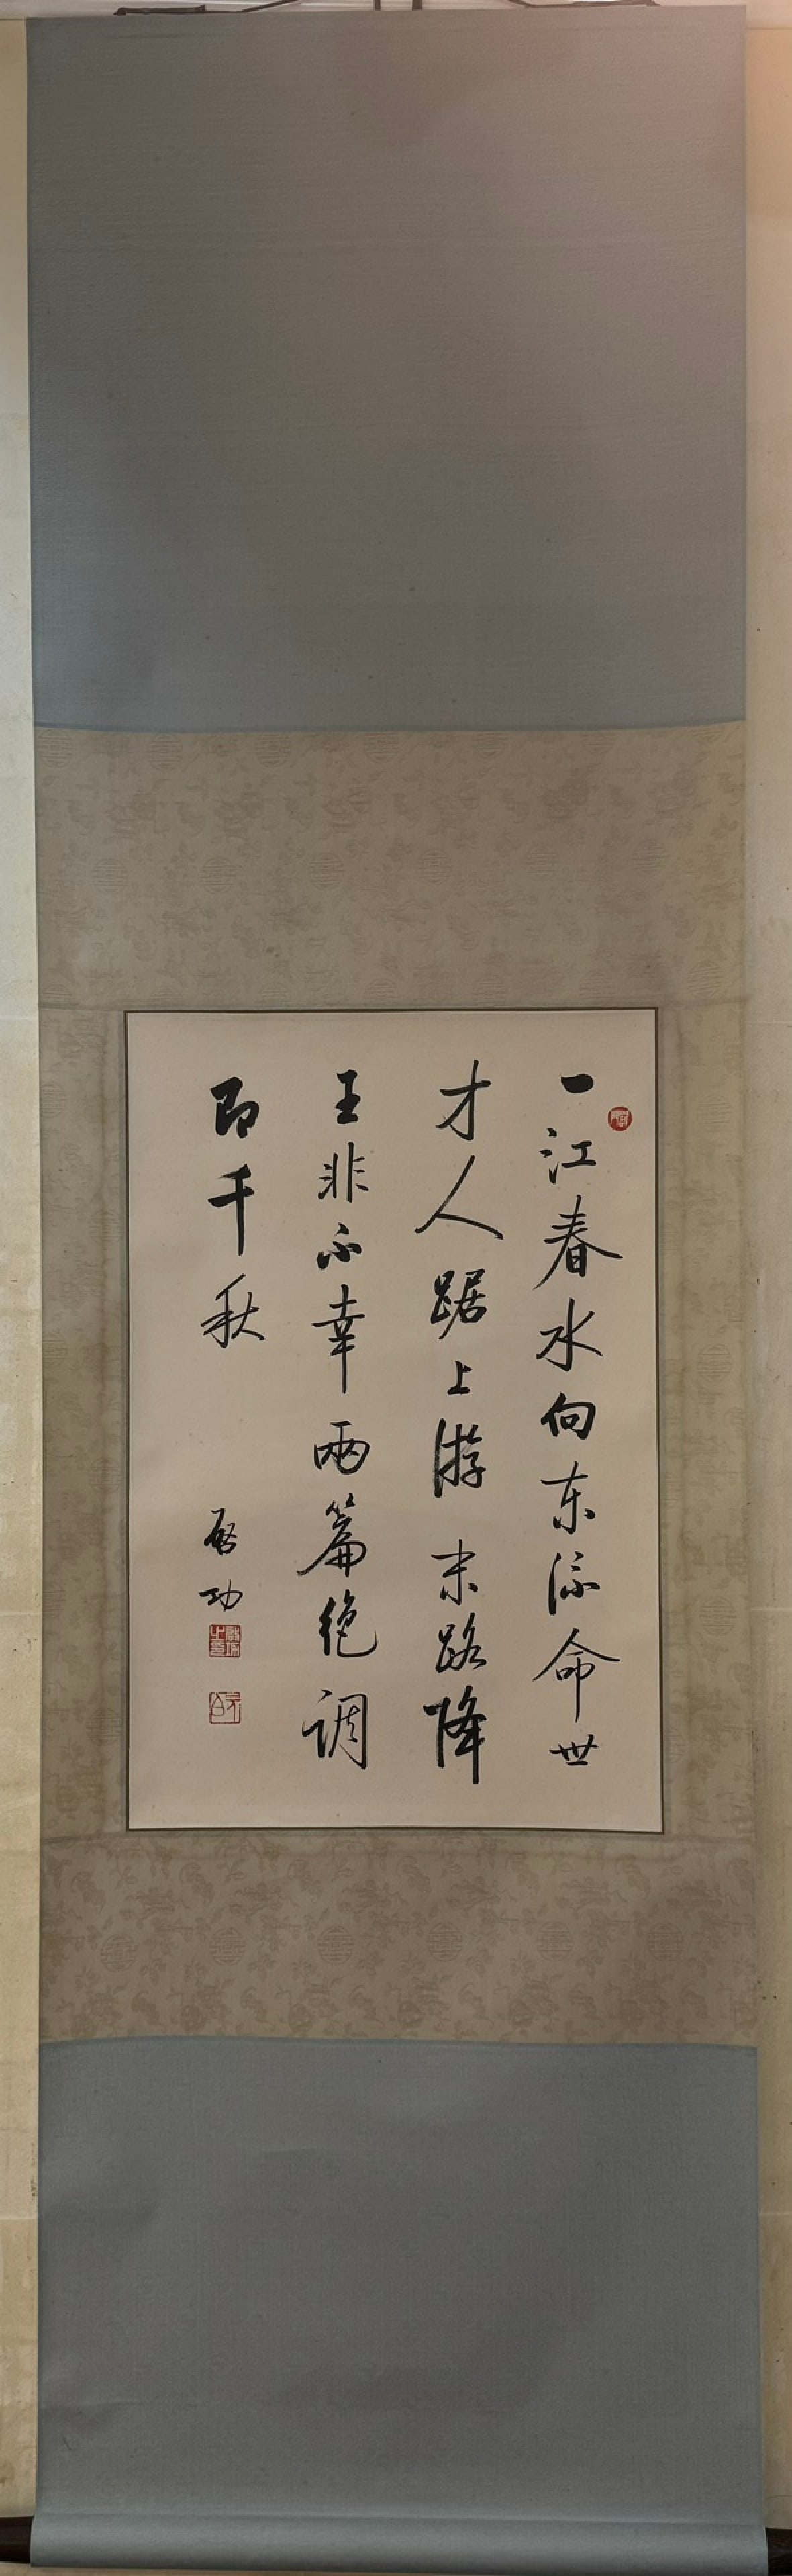 一江春水向东流命世
才人踞上游末路降
王非不幸两篇绝调
即千秋
启功